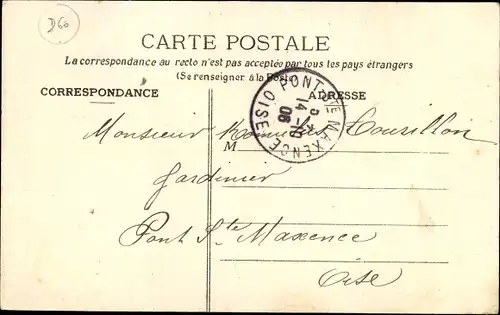 D60
CARTE POSTALE
La correspondance au recto n'est pas acceptée par tous les pays étrangers
(Se renseigner à la Poste)
CORRESPONDANCE
ADRESSE
PONT STE MAXENCE
OISE
14
06
Monsieur
M
Jardinier
Pont Ste Maxence
Oise